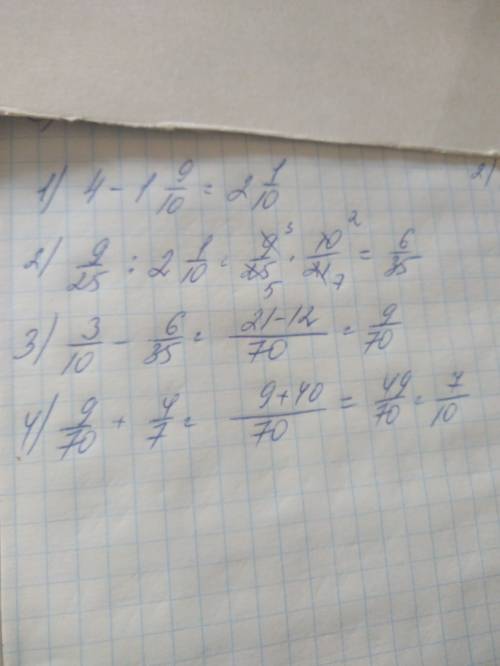 1) 4 - 1 9/10 = 2 1/10
2)
2) 9/25 : 2 1/10 = 9/25 · 10/21 = 6/35
3) 3/10 - 6/35 = 21-12/70 = 9/70
4) 9/70 + 4/7 = 9+40/70 = 49/70 = 7/10